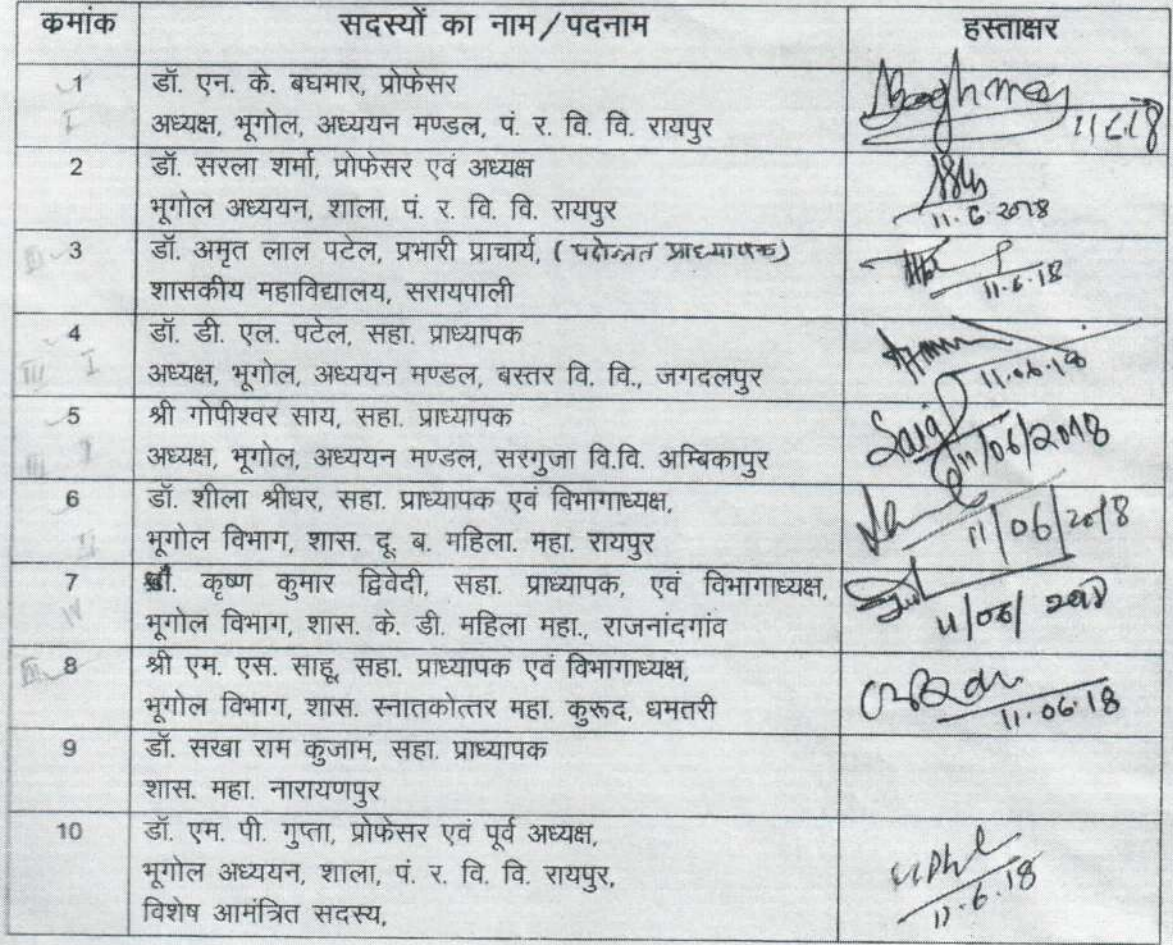 क्रमांक सदस्यों का नाम/पदनाम हस्ताक्षर
1 डॉ. एन. के. बघमार, प्रोफेसर
अध्यक्ष, भूगोल, अध्ययन मण्डल, पं. र. वि. वि. रायपुर
11.6.18
2 डॉ. सरला शर्मा, प्रोफेसर एवं अध्यक्ष
भूगोल अध्ययन, शाला, पं. र. वि. वि. रायपुर
11.6.2018
3 डॉ. अमृत लाल पटेल, प्रभारी प्राचार्य, (पदोन्नत प्राध्यापक)
शासकीय महाविद्यालय, सरायपाली
11.6.18
4 डॉ. डी. एल. पटेल, सहा. प्राध्यापक
III I अध्यक्ष, भूगोल, अध्ययन मण्डल, बस्तर वि. वि., जगदलपुर
11.06.18
5 श्री गोपीश्वर साय, सहा. प्राध्यापक
अध्यक्ष, भूगोल, अध्ययन मण्डल, सरगुजा वि.वि. अम्बिकापुर
11/06/2018
6 डॉ. शीला श्रीधर, सहा. प्राध्यापक एवं विभागाध्यक्ष,
भूगोल विभाग, शास. दू. ब. महिला. महा. रायपुर
11/06/2018
7 कृष्ण कुमार द्विवेदी, सहा. प्राध्यापक, एवं विभागाध्यक्ष,
भूगोल विभाग, शास. के. डी. महिला महा., राजनांदगांव
11/06/2018
8 श्री एम. एस. साहू, सहा. प्राध्यापक एवं विभागाध्यक्ष,
भूगोल विभाग, शास. स्नातकोत्तर महा. कुरूद, धमतरी
11.06.18
9 डॉ. सखा राम कुजाम, सहा. प्राध्यापक
शास. महा. नारायणपुर
10 डॉ. एम. पी. गुप्ता, प्रोफेसर एवं पूर्व अध्यक्ष,
भूगोल अध्ययन, शाला, पं. र. वि. वि. रायपुर,
विशेष आमंत्रित सदस्य,
11.6.18